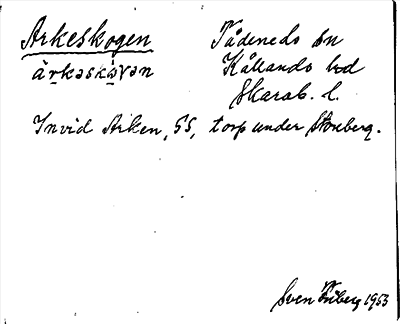 Arkeskogen
ärkaskåvan
Tådenеds sn
Kållands hd
Skarab. l.
Invid Arken, SS, torp under Stenberg.
Sven Friberg 1953